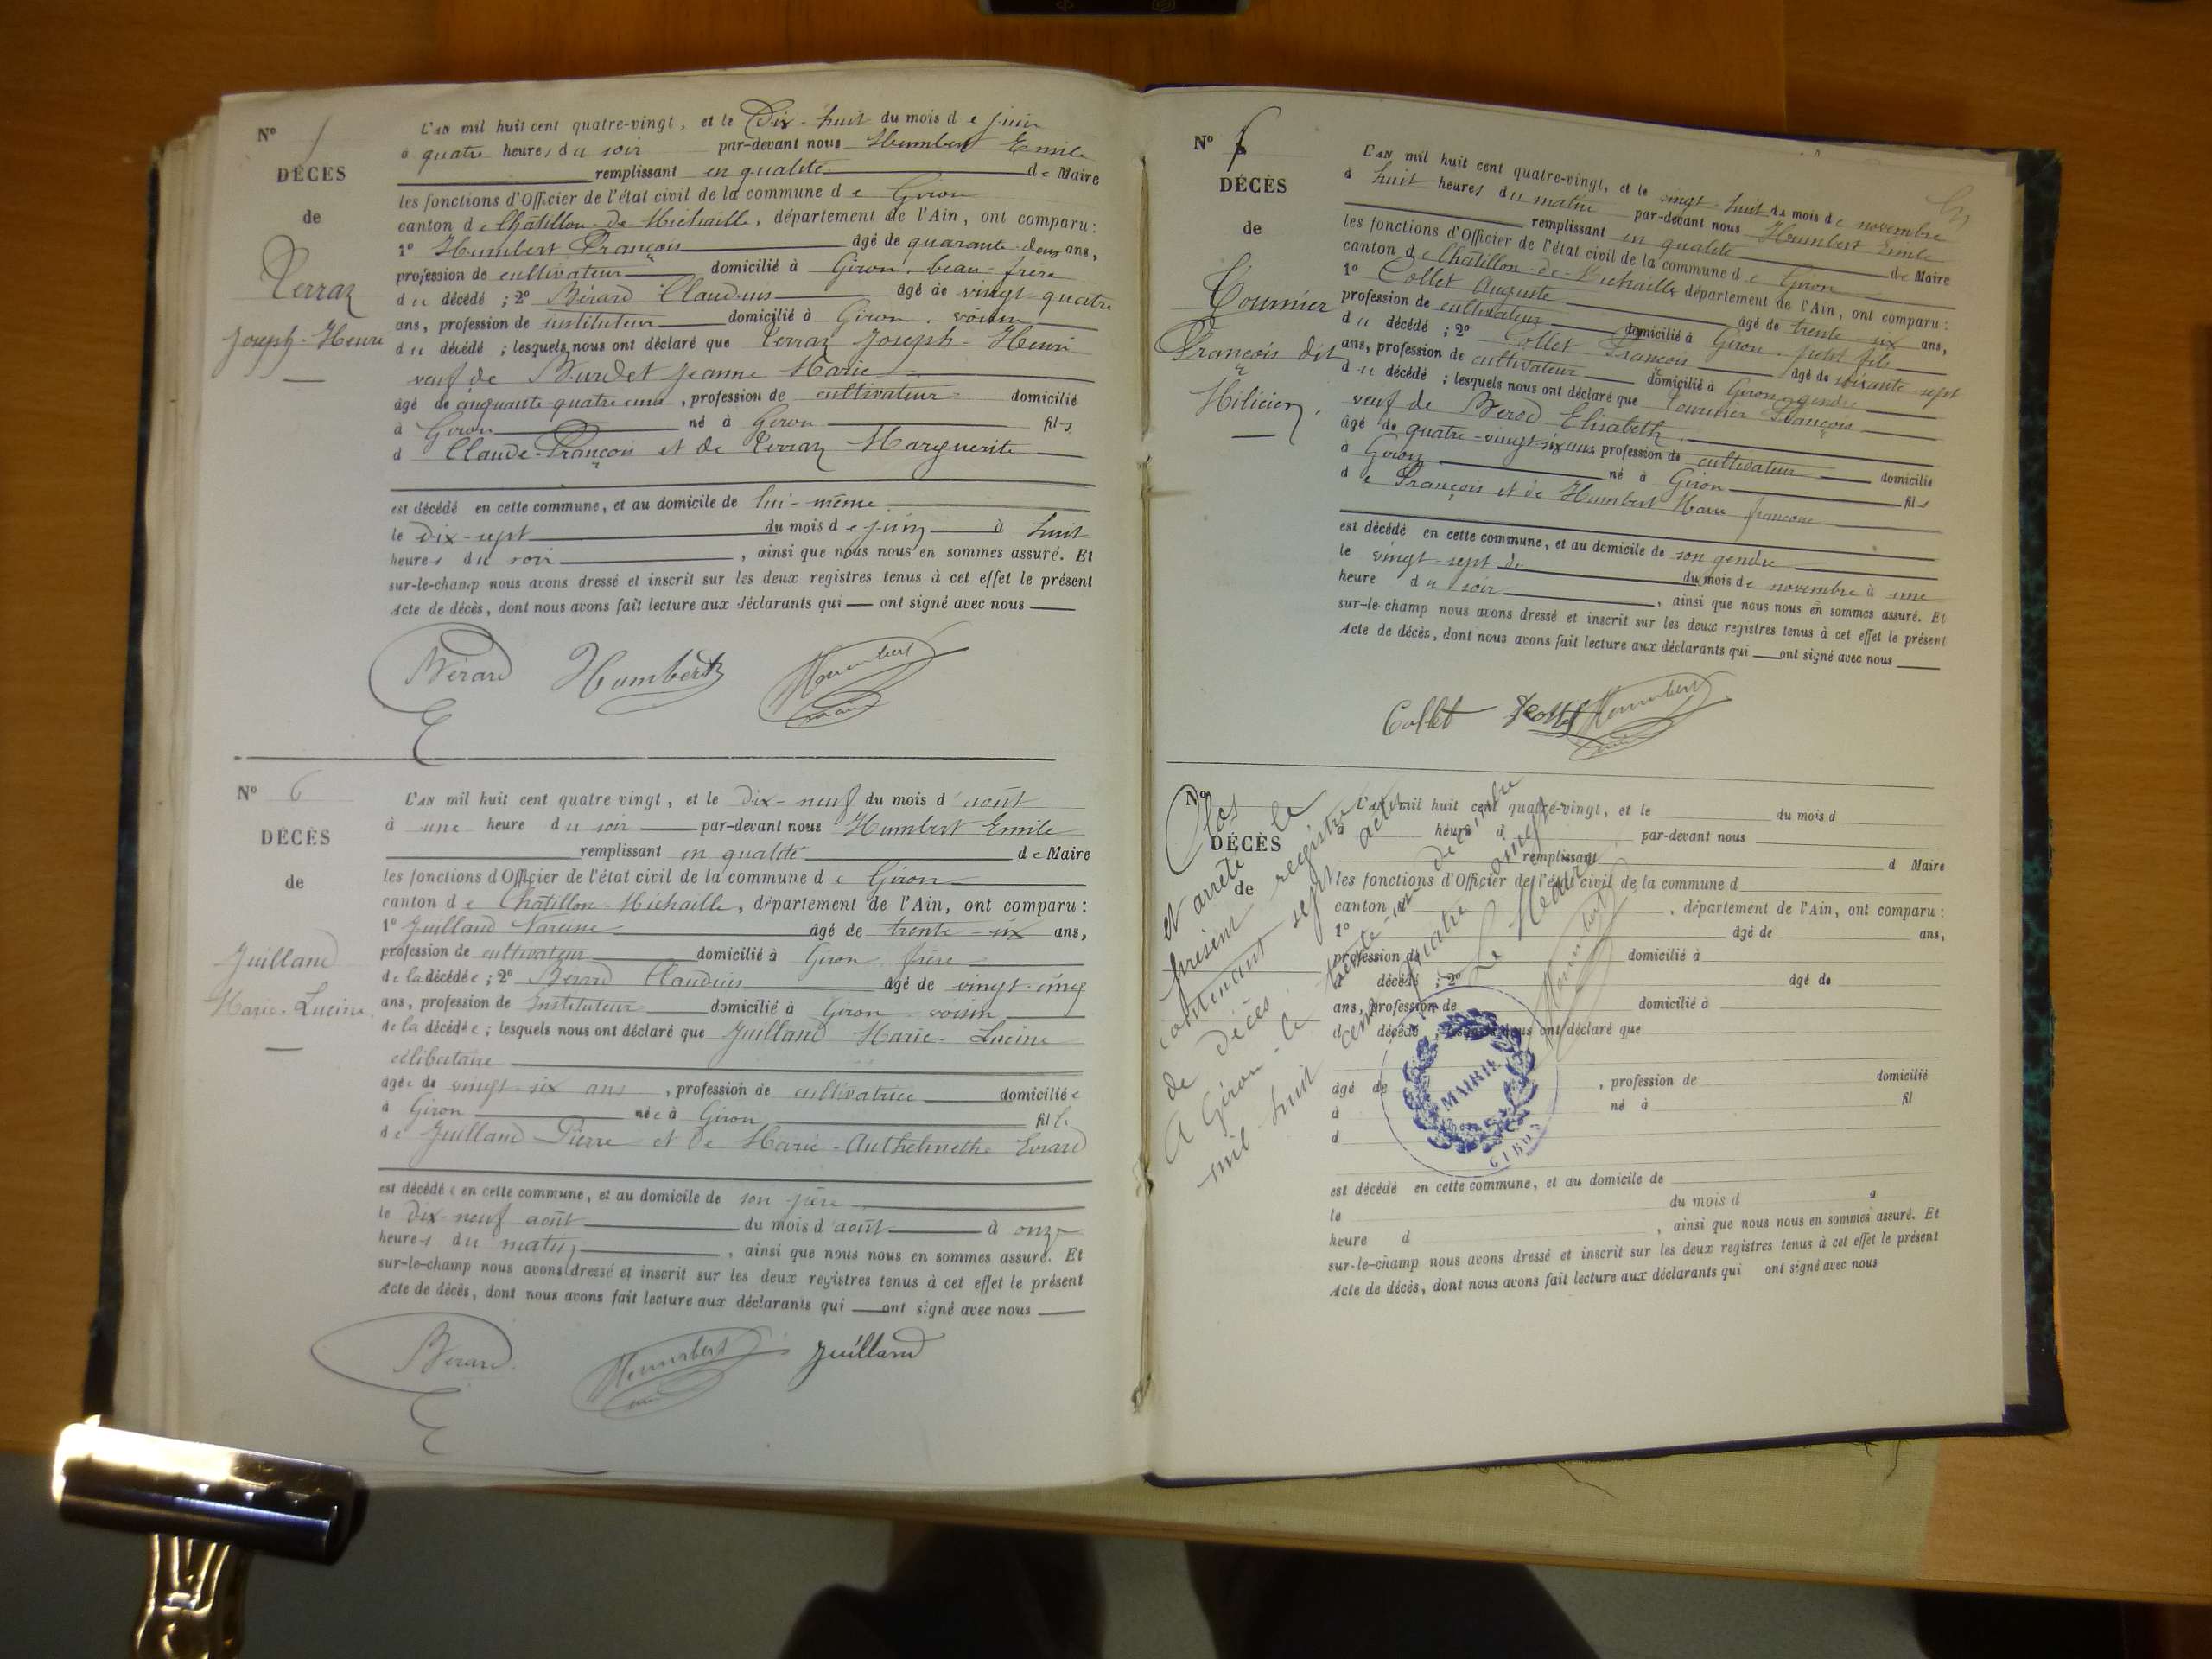 Nº
DÉCÈS
de
Perraz
Joseph-Henri
L'an mil huit cent quatre-vingt, et le Dix-huit du mois de juin
à quatre heures du soir par-devant nous Humbert Emile
remplissant en qualité de Maire
les fonctions d'Officier de l'état civil de la commune de Giron
canton de Châtillon-de-Michaille, département de l'Ain, ont comparu :
1º Humbert François âgé de quarante-deux ans,
profession de cultivateur domicilié à Giron, beau-frère
du décédé ; 2º Bérard Claudius âgé de vingt-quatre
ans, profession de instituteur domicilié à Giron, voisin
du décédé ; lesquels nous ont déclaré que Perraz Joseph-Henri
veuf de Burdet Jeanne Marie
âgé de cinquante quatre ans, profession de cultivateur domicilié
à Giron né à Giron fils
d Claude-François et de Perraz Marguerite
est décédé en cette commune, et au domicile de lui-même
le dix-sept du mois de juin à huit
heures du soir, ainsi que nous nous en sommes assuré. Et
sur-le-champ nous avons dressé et inscrit sur les deux registres tenus à cet effet le présent
Acte de décès, dont nous avons fait lecture aux déclarants qui ont signé avec nous
Bérard Humbert Humbert
Nº 6
DÉCÈS
de
Juilland
Marie-Lucine
L'an mil huit cent quatre-vingt, et le dix-neuf du mois d'août
à une heure du soir par-devant nous Humbert Emile
remplissant en qualité de Maire
les fonctions d'Officier de l'état civil de la commune de Giron
canton de Châtillon-Michaille, département de l'Ain, ont comparu :
1º Juilland Narcisse âgé de trente-six ans,
profession de cultivateur domicilié à Giron, frère
de la décédée ; 2º Bérard Claudius âgé de vingt-cinq
ans, profession de Instituteur domicilié à Giron voisin
de la décédée ; lesquels nous ont déclaré que Juilland Marie-Lucine
célibataire
âgée de vingt-six ans, profession de cultivatrice domiciliée
à Giron née à Giron fille
de Juilland Pierre et de Marie- Evrard
est décédée en cette commune, et au domicile de son père
le dix-neuf août du mois d'août à onze
heures du matin, ainsi que nous nous en sommes assuré. Et
sur-le-champ nous avons dressé et inscrit sur les deux registres tenus à cet effet le présent
Acte de décès, dont nous avons fait lecture aux déclarants qui ont signé avec nous
Bérard Humbert Juilland
Nº 7
DÉCÈS
de
Tournier
François dit
Milicien
L'an mil huit cent quatre-vingt, et le vingt-huit du mois de novembre
à huit heures du matin par-devant nous Humbert Emile
remplissant en qualité de Maire
les fonctions d'Officier de l'état civil de la commune de Giron
canton de Châtillon-de-Michaille département de l'Ain, ont comparu :
1º Collet Auguste âgé de trente-six ans,
profession de cultivateur domicilié à Giron, petit fils
du décédé ; 2º Collet François âgé de soixante-sept
ans, profession de cultivateur domicilié à Giron, gendre
du décédé ; lesquels nous ont déclaré que Tournier François
veuf de Berod Elisabeth
âgé de quatre-vingt-six ans, profession de cultivateur domicilié
à Giron né à Giron fils
de François et de Humbert Marie françoise
est décédé en cette commune, et au domicile de son gendre
le vingt-sept du mois de novembre à une
heure du soir, ainsi que nous nous en sommes assuré. Et
sur-le-champ nous avons dressé et inscrit sur les deux registres tenus à cet effet le présent
Acte de décès, dont nous avons fait lecture aux déclarants qui ont signé avec nous
Collet Collet Humbert
Nº
DÉCÈS
de
L'an mil huit cent quatre-vingt, et le du mois d
à heure d par-devant nous
remplissant d Maire
les fonctions d'Officier de l'état civil de la commune d
canton , département de l'Ain, ont comparu :
1º âgé de ans,
profession de domicilié à
décédé ; 2º âgé de
ans, profession de domicilié à
d décédé lesquels nous ont déclaré que
âgé de , profession de domicilié
à né à fil
d
est décédé en cette commune, et au domicile de
le du mois d à
heure d , ainsi que nous nous en sommes assuré. Et
sur-le-champ nous avons dressé et inscrit sur les deux registres tenus à cet effet le présent
Acte de décès, dont nous avons fait lecture aux déclarants qui ont signé avec nous
Clos
et arrêté le
présent registre
contenant sept actes
de décès
A Giron le trente-un décembre
mil huit cent quatre-vingt
Le Maire
Humbert
MAIRIE
GIRON